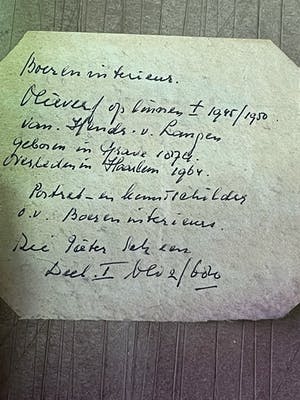 Boereninterieur.
Olieverf op linnen ± 1945/1950
van Hendr. v. Langen
geboren in Grave 1874.
Overleden in Haarlem 1964.
Portret- en kunstschilder
o.a. Boereninterieurs.
Zie Pieter Scheen
Deel I blz 2/600